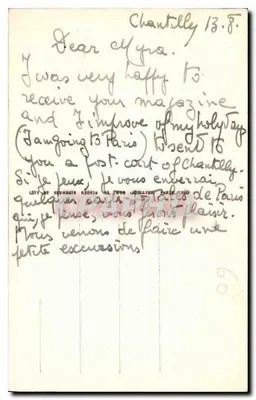 Chantilly 13.8.
Dear Myra.
I was very happy to
receive your magazine
and I improve of my holydays
(I am going to Paris) to sent to
you a post-cart of Chantilly.
Si je peux, je vous enverrai
quelques cartes postales de Paris
qui, je pense, vous feront plaisir.
Nous venons de faire une
petite excursions